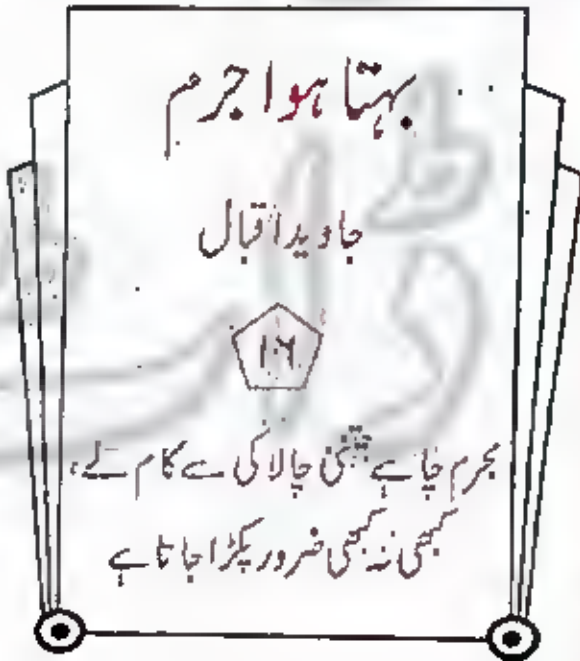 بہتا ہوا جرم
جاوید اقبال
۱۶
مجرم چاہے جتنی چالاکی سے کام لے،
کبھی نہ کبھی ضرور پکڑا جاتا ہے